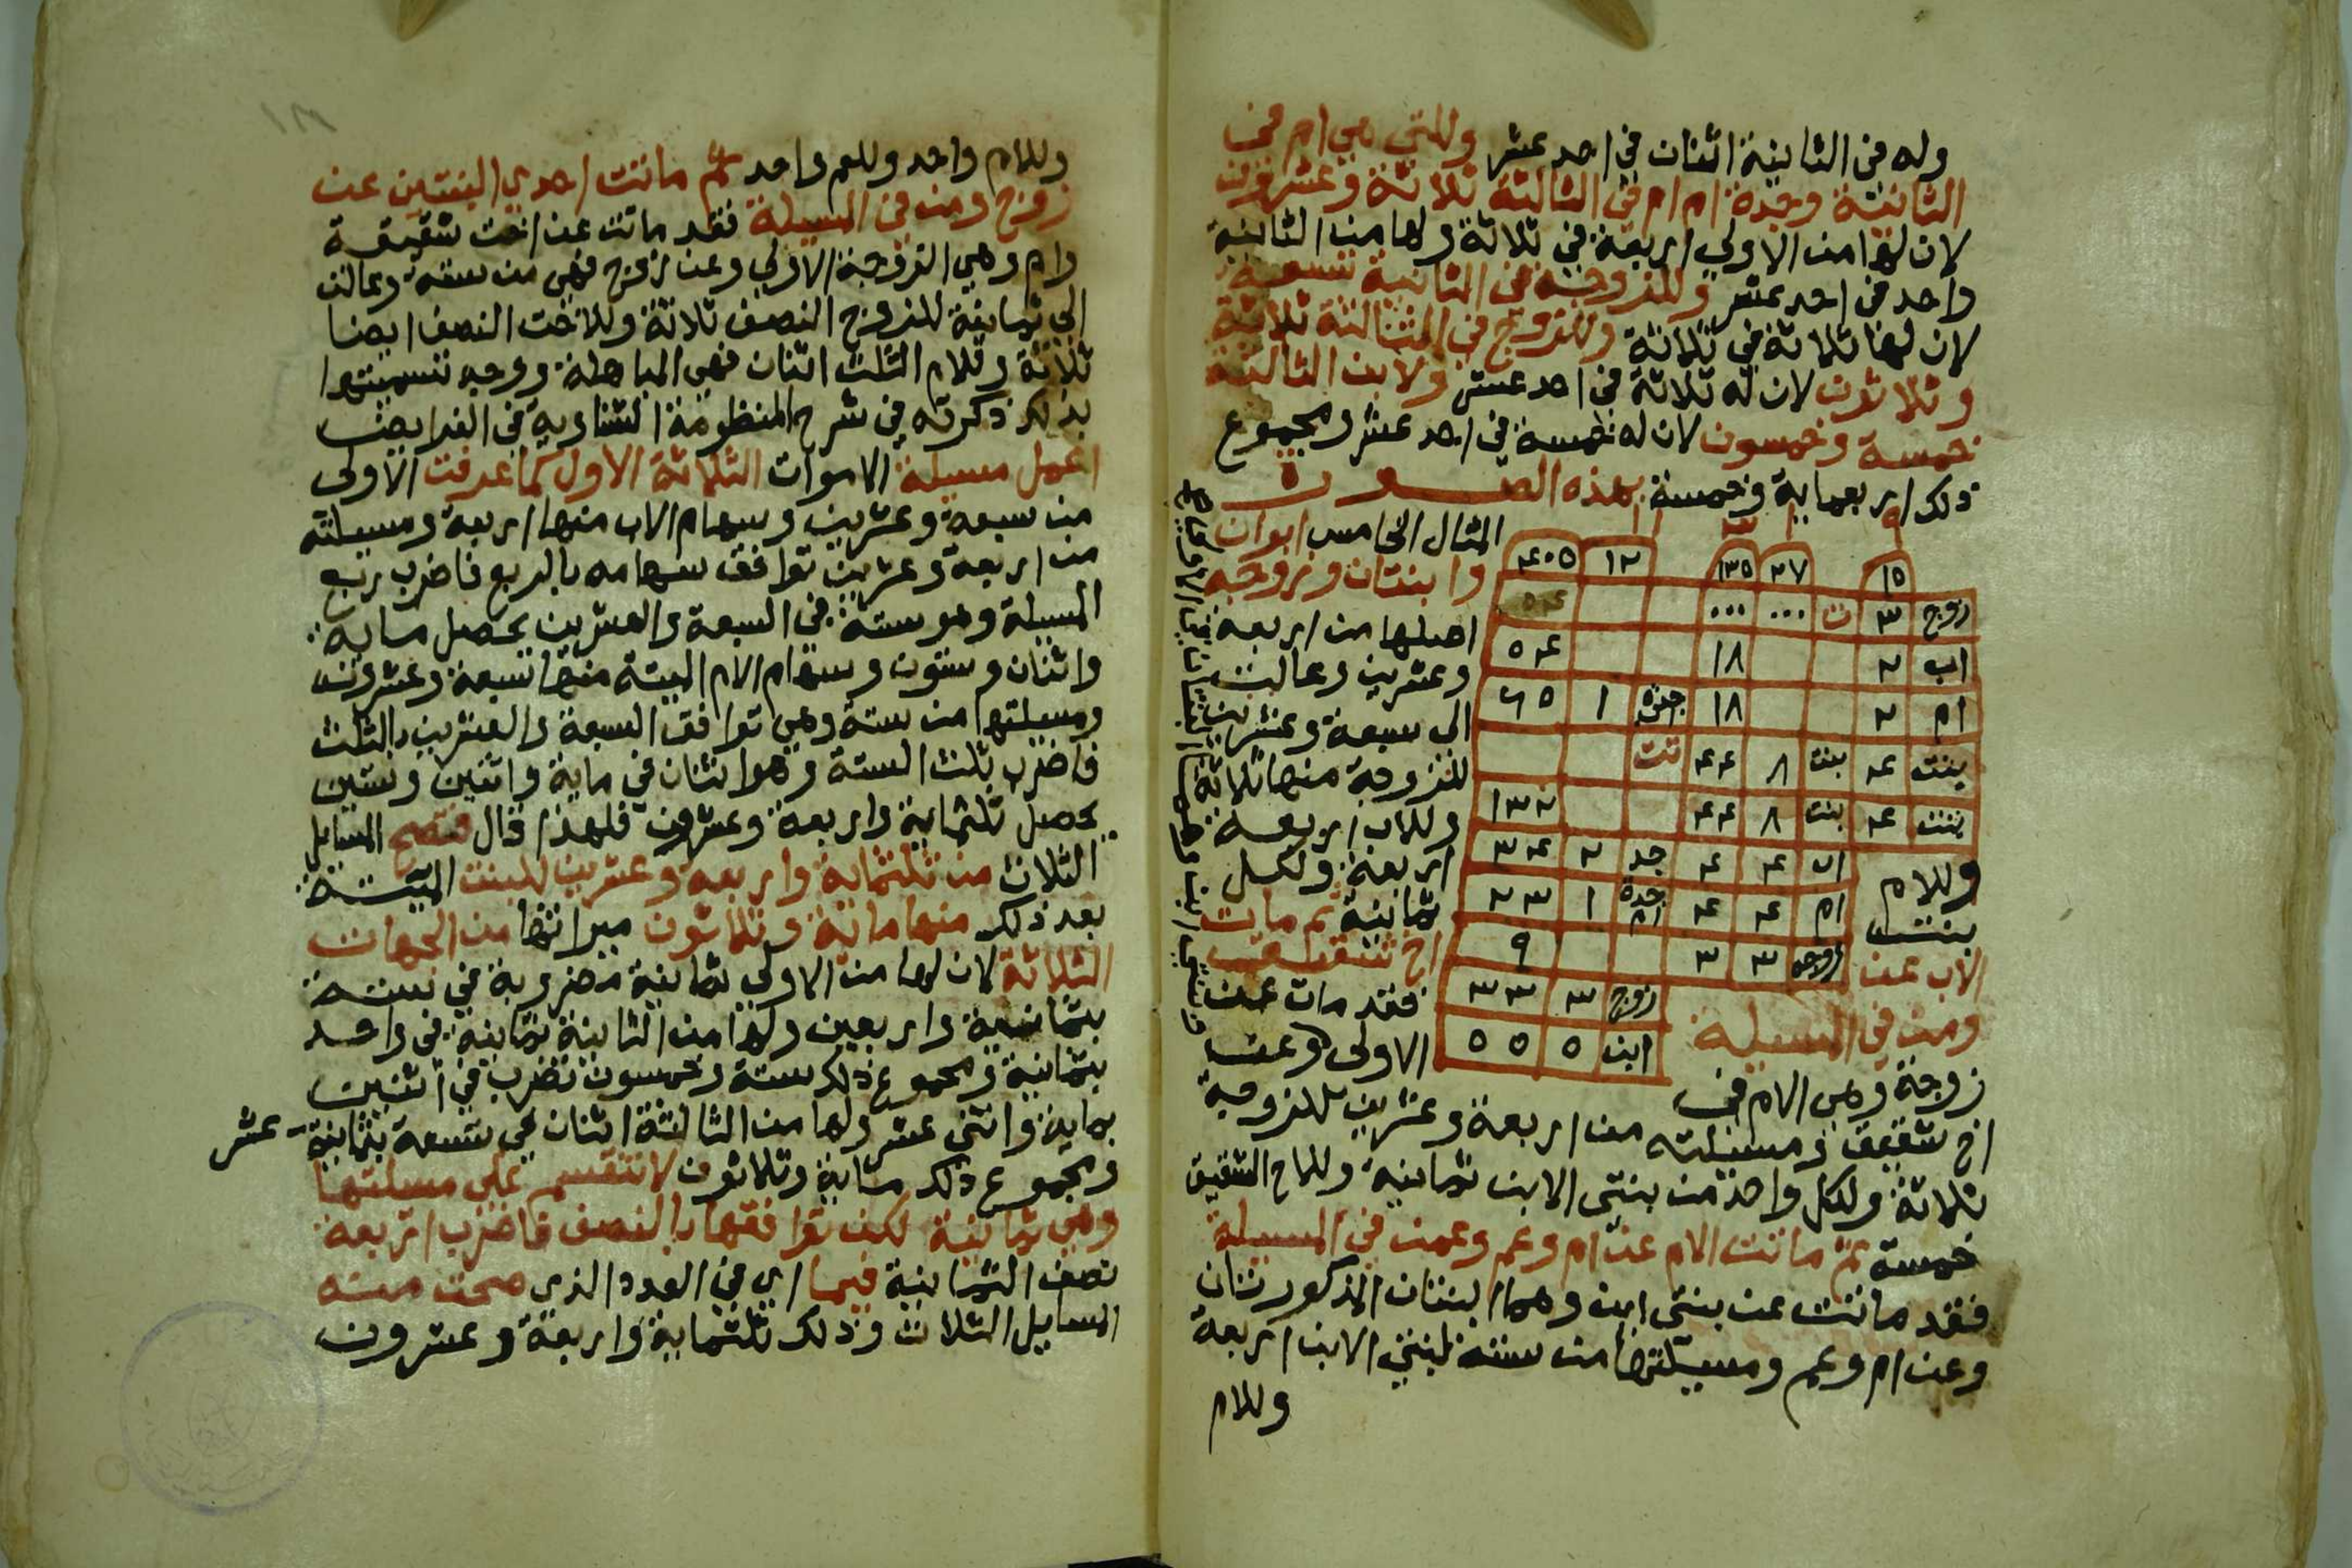 وله في الثانية اثنان في احد عشر وللتي هي ام في
الثانية وجدة ام ام في الثالثة ثلاثة وعشرون
لان لها من الاولي اربعة في ثلاثة ولها من الثانية
واحد في احد عشر وللزوجة في الثانية تسعة
لان لها ثلاثة في ثلاثة وللزوج في الثالثة ثلاثة
وثلاثون لان له ثلاثة في احد عشر ولابن الثالثة
خمسة وخمسون لان له خمسة في احد عشر ومجموع
ذلك اربعماية وخمسة بهذه الصورة
٩ ١ ٣ ١١
١٥ ٢٧ ١٣٥ ١٢ ٤٠٥
زوج ٣ ت ... ...
اب ٢ ١٨ ٥٤
ام ٢ ١٨ جدة ١ ٦٥
بنت ٤ بنت ٨ ٤٤ تت
بنت ٤ بنت ٨ ٤٤ ١٣٢
اب ٤ ٤ جد ٢ ٣٤
ام ٤ ٤ جدة ام ١ ٢٣
زوجه ٣ ٣ ٩
زوج ٣ ٣٣
ابن ٥ ٥٥
المثال الخامس ابوان
وابنتان وزوجه
اصلها من اربعة
وعشرين وعالت
الى سبعة وعشرين
للزوجة منها ثلاثة
وللاب اربعة
وللام
اربعة ولكل
بنت
ثمانية ثم مات
الاب عن
اخ شقيق
ومن في المسيلة
فقد مات عن
زوجة وهي الام في
الاولى وعن
اخ شقيق ومسيلته من اربعة وعشرين للزوجة
ثلاثة ولكل واحدة من بنتي الابن ثمانية وللاخ الشقيق
خمسة ثم ماتت الام عن ام وعم وعمن في المسيلة
فقد ماتت عن بنتي ابن وهما البنتان المذكورتان
وعن ام وعم ومسيلتها من ستة لبنتي الابن اربعة
وللام
وللام واحد وللعم واحد ثم ماتت احدي البنتين عن
زوج ومن في المسيلة فقد ماتت عن اخت شقيقة
وام وهي الزوجة الاولي وعن زوج فهي من ستة وعالت
الي ثمانية للزوج النصف ثلاثة وللاخت النصف ايضا
ثلاثة وللام الثلث اثنان فهي المباهلة ووجه تسميتها
بذلك ذكرته في شرح المنظومة الشناوية في الفرايض
اعمل مسيلة الاموات الثلاثة الاول كما عرفت الاولى
من سبعة وعشرين وسهام الاب منها اربعة ومسيلته
من اربعة وعشرين توافق سهامه بالربع فاضرب ربع
المسيلة وهو ستة في السبعة والعشرين يحصل ماية
واثنان وستون وسهام الام الميتة منها تسعة وعشرون
ومسيلتها من ستة وهي توافق السبعة والعشرين بالثلث
فاضرب ثلث الستة وهو اثنان في ماية واثنين وستين
يحصل ثلثماية واربعة وعشرون فلهذا قال فتصح المسايل
الثلاث من ثلثماية واربعة وعشرين للبنت الميتة
بعد ذلك منها ماية وثلاثون ميراثها من الجهات
الثلاثة لان لها من الاولي ثمانية مضروبة في ستة
بثمانية واربعين ولها من الثانية ثمانية في واحد
بثمانية ومجموع ذلك ستة وخمسون تضرب في اثنين
بماية واثني عشر ولها من الثالثة اثنان في تسعة بثمانية عشر
ومجموع ذلك ماية وثلاثون لا تنقسم على مسلتها
وهي ثمانية لكن توافقها بالنصف فاضرب اربعة
نصف الثمانية فيها اي في العدد الذي صحت منه
المسايل الثلاث وذلك ثلثماية واربعة وعشرون